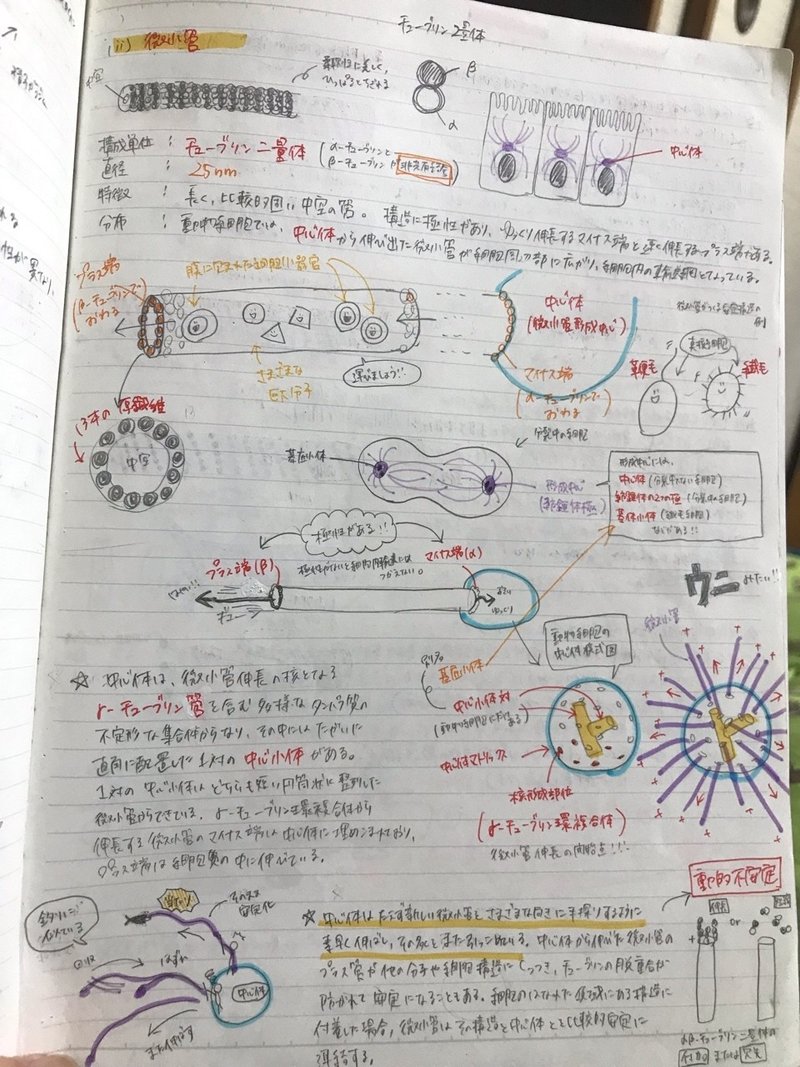 チューブリン2量体
(ii) 微小管
中空
β
α
中心体
構成単位 : チューブリン二量体 (α-チューブリンと
β-チューブリンが非共有結合)
直径 : 25nm
特徴 : 長く、比較的固い中空の管。構造に極性があり、ゆっくり伸長するマイナス端と速く伸長するプラス端がある。
分布 : 動物細胞では、中心体から伸び出た微小管が細胞周辺部に広がり、細胞内の
プラス端
(β-チューブリンで
おわる
膜に包まれた細胞小器官
さまざまな
巨大分子
運びましょう!!
中心体
(微小管形成中心)
マイナス端
(α-チューブリンで
おわる
真核細胞
鞭毛
繊毛
13本の
中空
分裂中の細胞
基底小体
形成中心
(紡錘体極)
形成中心には、
中心体 (分裂中でない細胞)
紡錘体の2つの極 (分裂中の細胞)
基底小体 (繊毛細胞)
などがある!!
極性がある!!
プラス端(β)
マイナス端(α)
ゆっくり
ウニみたい!!
微小管
動物細胞の
中心体模式図
基底小体
中心小体対
中心体マトリックス
核形成部位
(γ-チューブリン環複合体)
微小管伸長の開始点!!!
☆ 中心体は、微小管伸長の核となる
γ-チューブリン環を含む多様なタンパク質の
不定形な集合体からなり、その中にはたがいに
直角に配置した1対の中心小体がある。
1対の中心小体はどちらも短い円筒状に整列した
微小管からできている。γ-チューブリン環複合体から
伸長する微小管のマイナス端は中心体に埋めこまれており、
プラス端は細胞質の中に伸びている。
動的不安定
釣りに
似ている
安定化
はずれ
回収
中心体
また伸ばす
☆ 中心体はたえず新しい微小管をさまざまな向きに手探りするように
素早く伸ばし、その後とまた引っこめている。中心体から伸びた微小管の
プラス管が他の分子や細胞構造にくっつき、チューブリンの脱重合が
防がれて安定になることもある。細胞のはなれた領域にある構造に
付着した場合、微小管はその構造と中心体とを比較的安定に
連結する。
or
αβ-チューブリン二量体の
付加 または 喪失